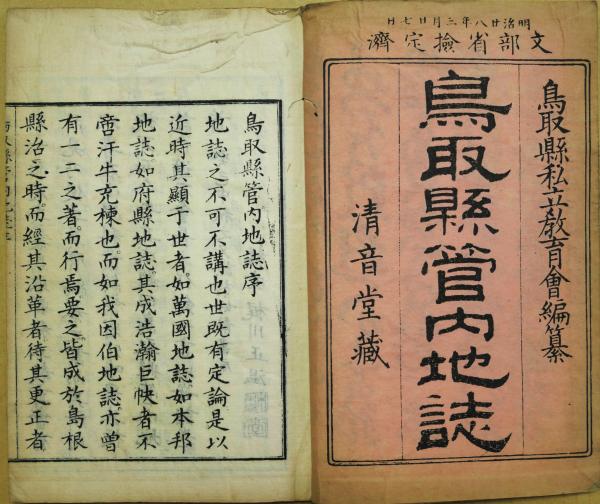 明治廿八年三月廿七日
文部省撿定濟
鳥取縣私立教育會編纂
鳥取縣管内地誌
清音堂藏
鳥取縣管内地誌序
地誌之不可不講也世既有定論是以
近時其顯于世者如萬國地誌如本邦
地誌如府縣地誌其成浩瀚巨帙者不
啻汗牛充棟也而如我因伯地誌亦曾
有一二之著而行焉要之皆成於島根
縣治之時而經其沿革者待其更正者